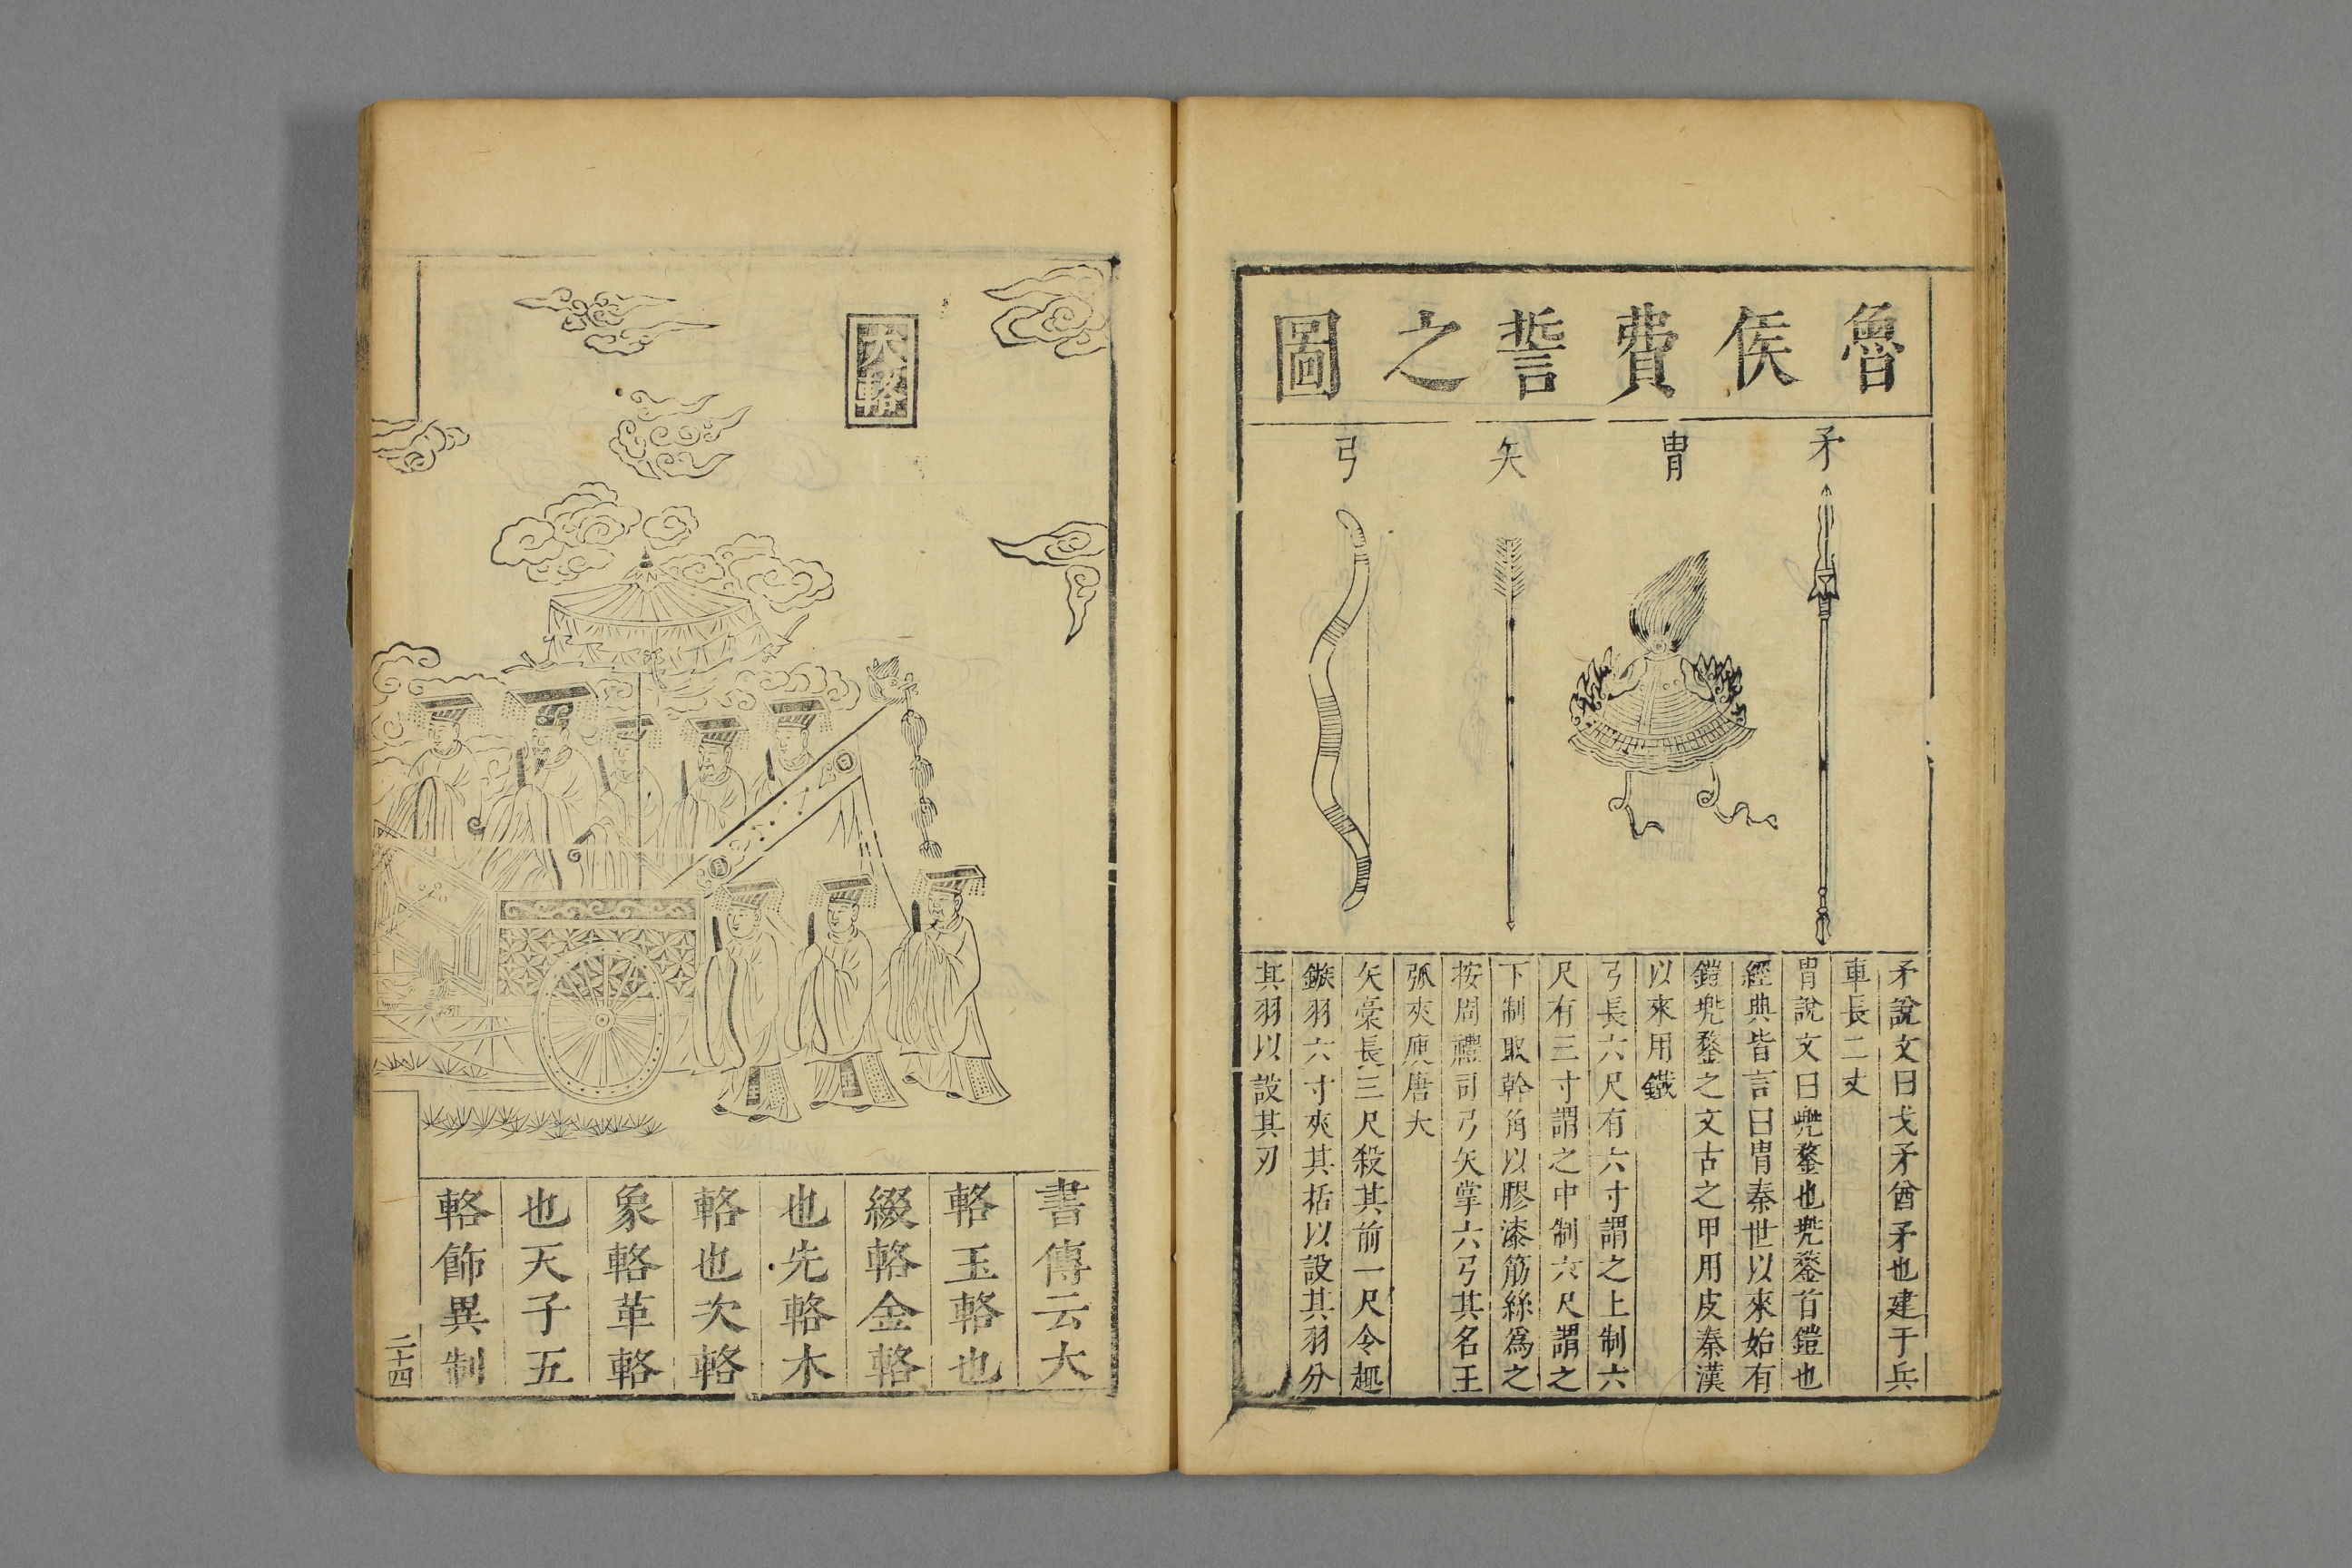 魯侯費誓之圖
矛
冑
矢
弓
矛說文曰戈矛酋矛也建于兵
車長二丈
冑說文曰兠鍪也兠鍪首鎧也
經典皆言曰冑秦世以來始有
鎧兠鍪之文古之甲用皮秦漢
以來用鐵
弓長六尺有六寸謂之上制六
尺有三寸謂之中制六尺謂之
下制取幹角以膠漆筋絲爲之
按周禮司弓矢掌六弓其名王
弧夾庾唐大
矢槀長三尺殺其前一尺令趣
鏃羽六寸夾其栝以設其羽分
其羽以設其刃
大輅
日
月
書傳云大
輅玉輅也
綴輅金輅
也先輅木
輅也次輅
象輅革輅
也天子五
輅飾異制
二十四